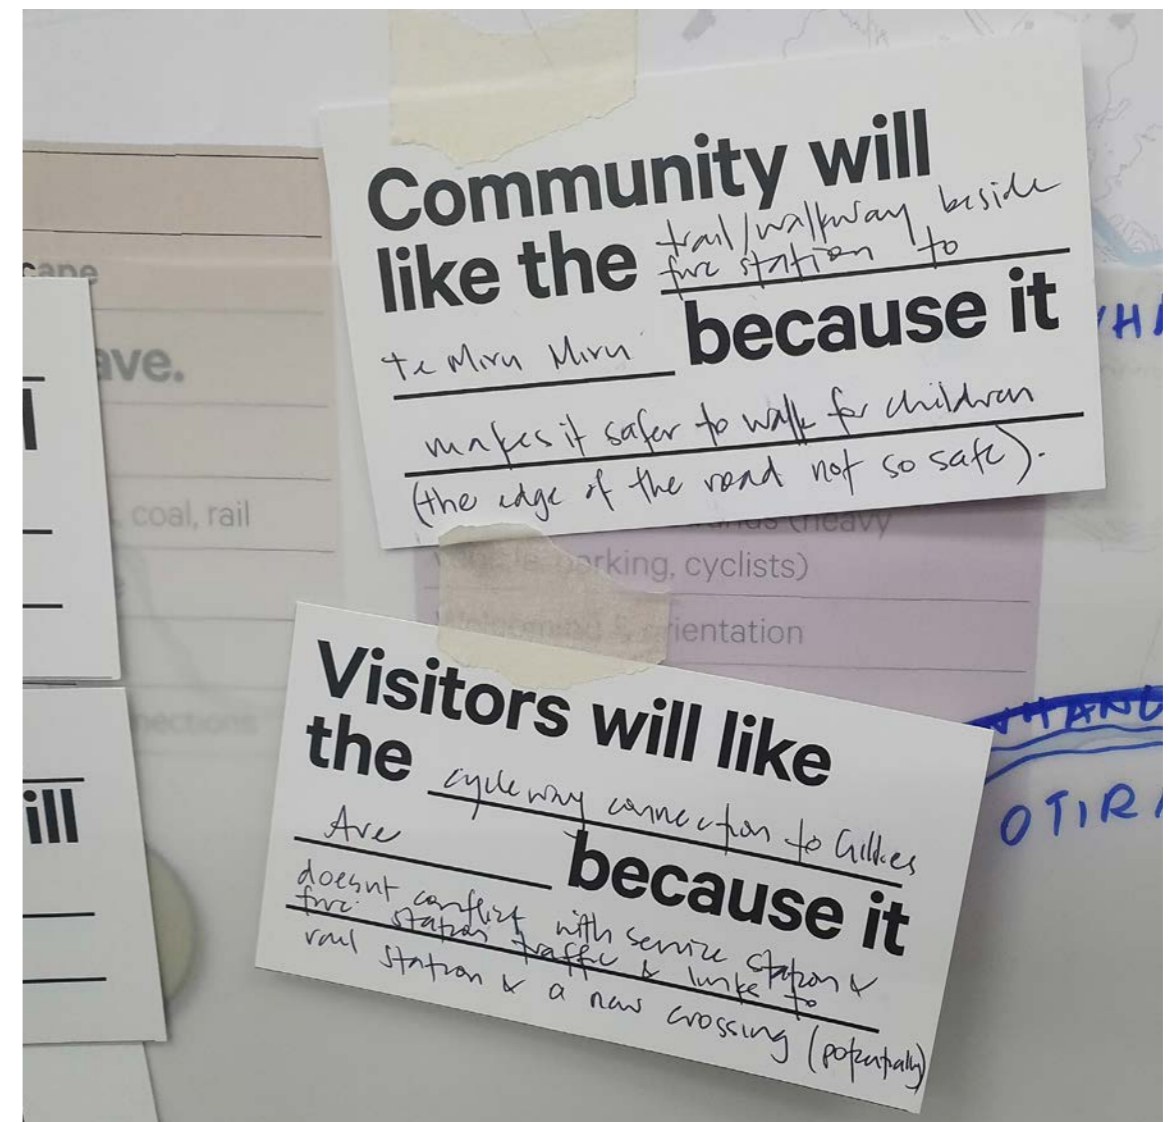 Community will
like the trail/walkway beside
fire station to
te Miru Miru because it
makes it safer to walk for children
(the edge of the road not so safe).
cape
ave.
, coal, rail
(heavy
parking, cyclists)
Welcoming & orientation
nections
ill
Visitors will like
the cycleway connection to Gillies
Ave because it
doesnt conflict with service station &
fire station traffic & links to
rail station & a new crossing (potentially)
OTIRA